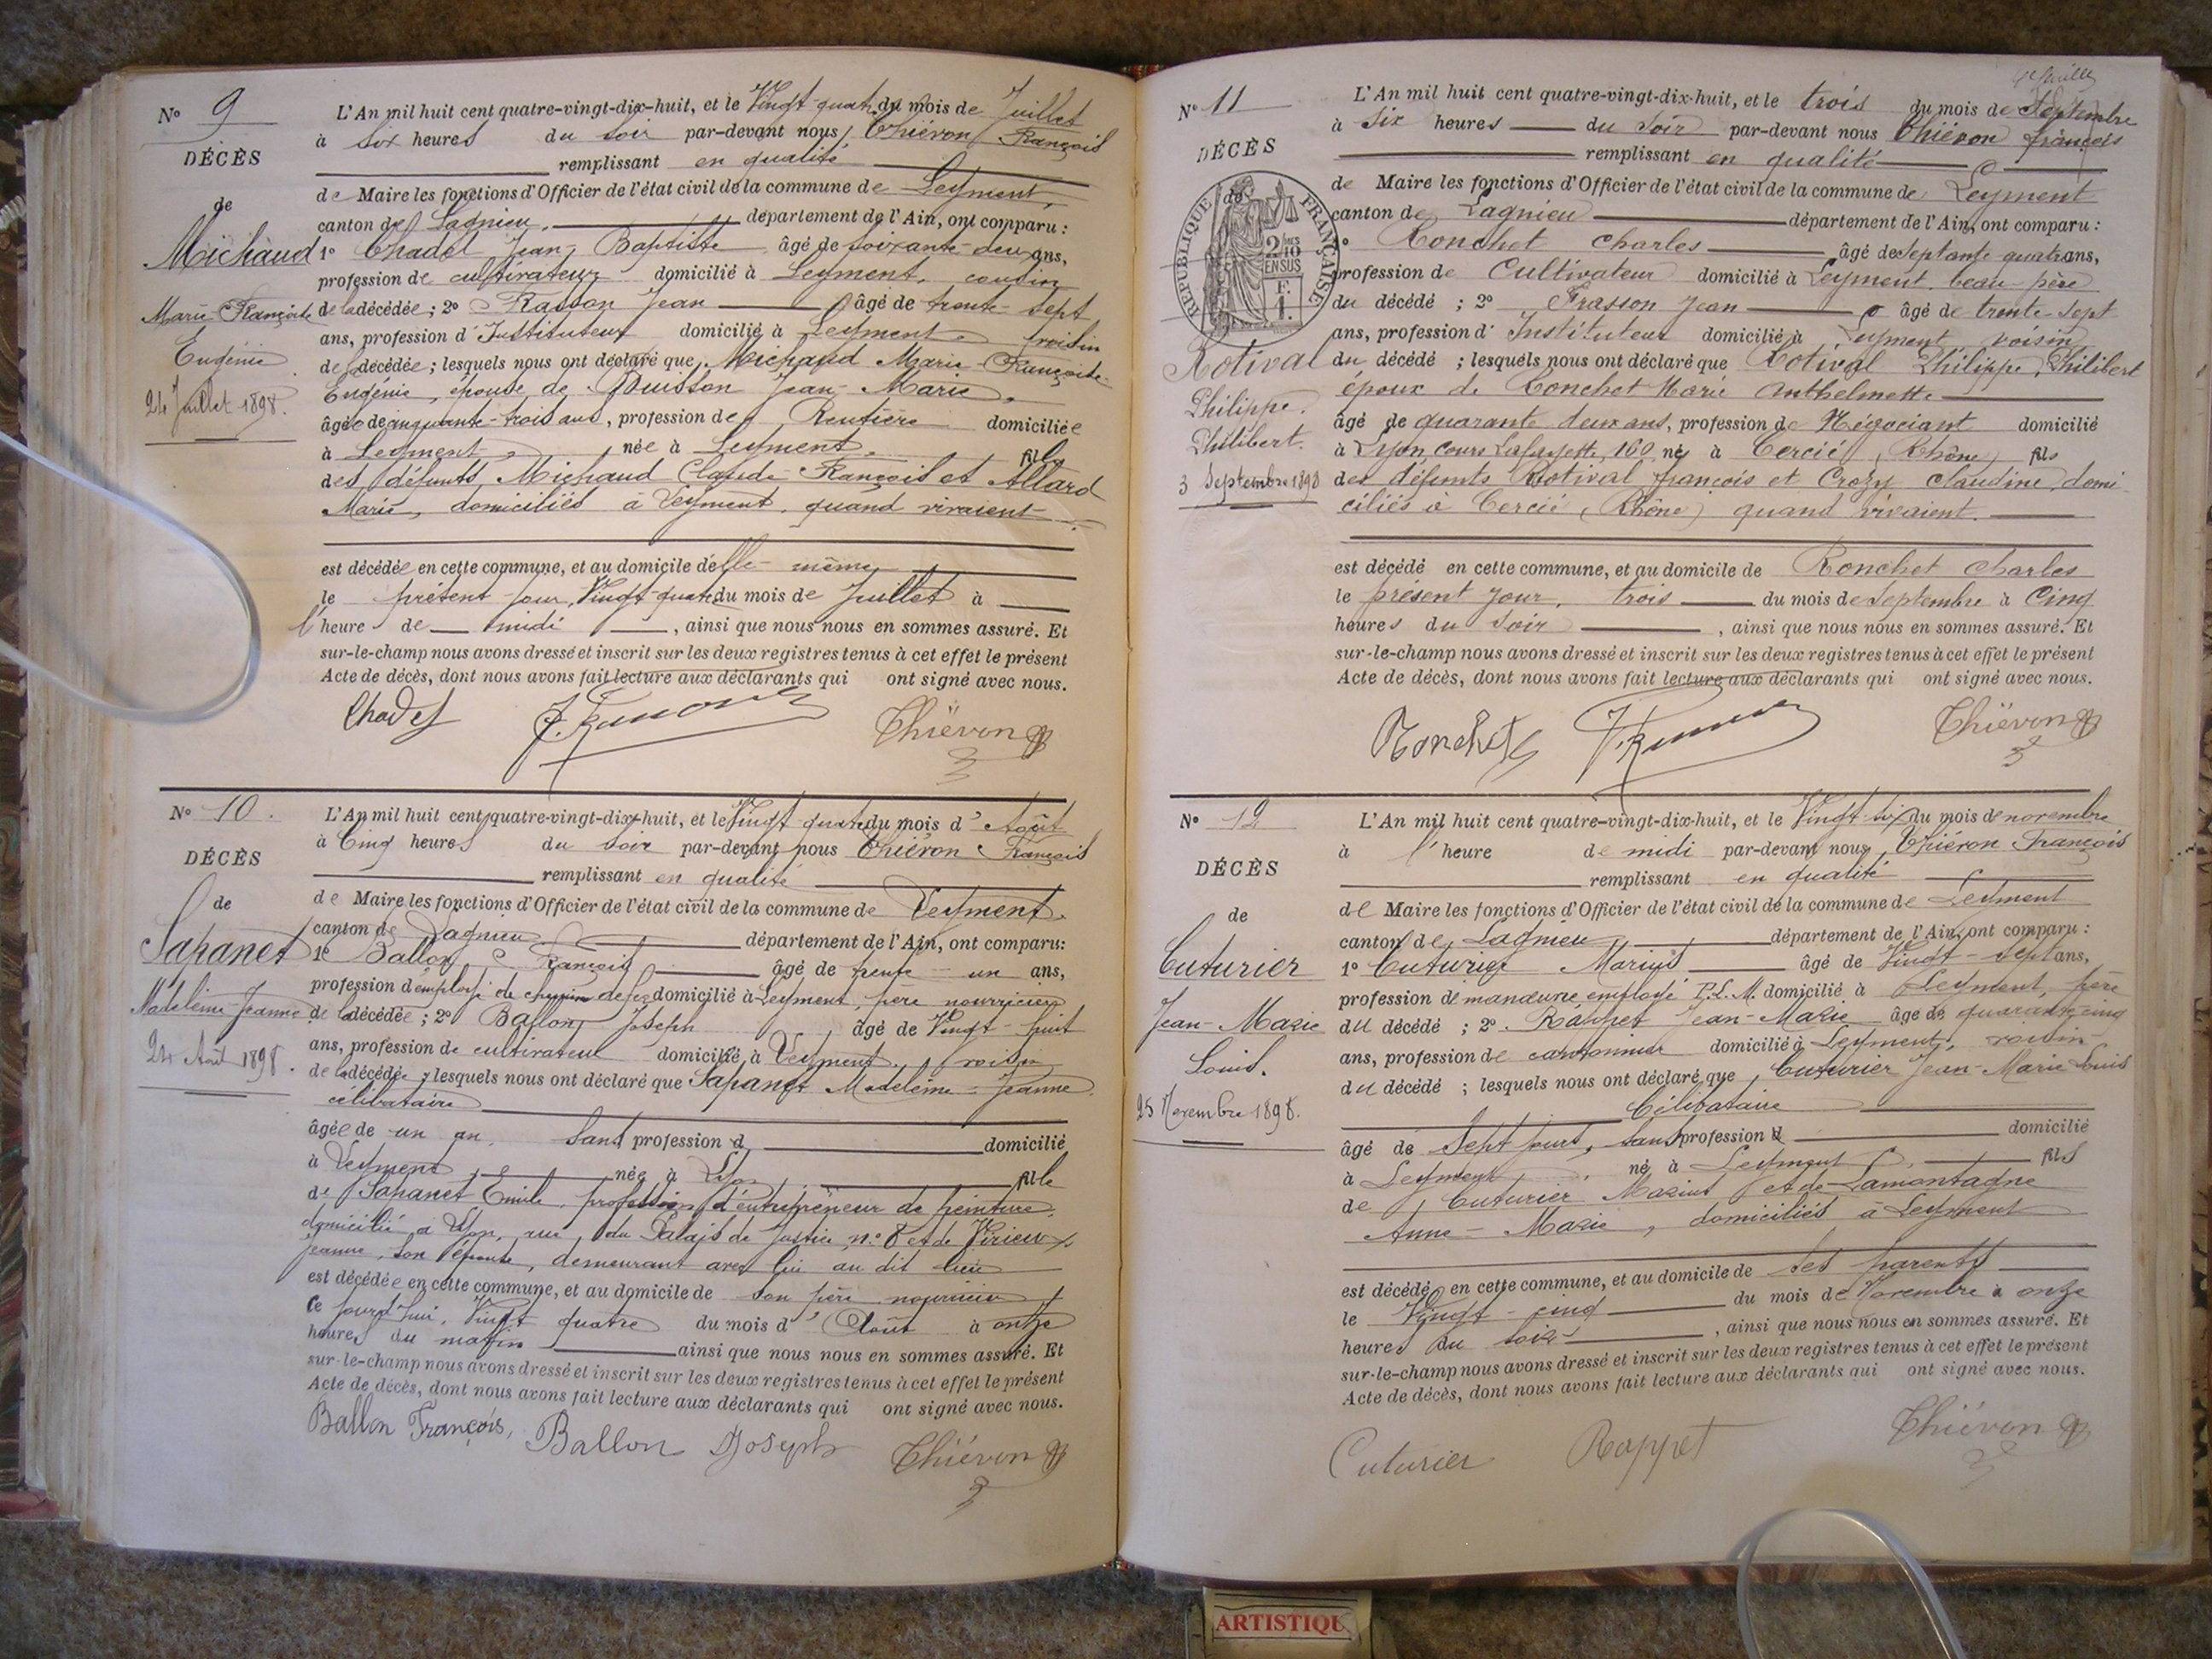 N° 9
DÉCÈS
de
Michaud
Marie Françoise
Eugénie
24 Juillet 1898.
L'An mil huit cent quatre-vingt-dix-huit, et le Vingt-quatre du mois de Juillet
à six heures du soir par-devant nous, Thiévon François
remplissant en qualité
de Maire les fonctions d'Officier de l'état civil de la commune de Leyment,
canton de Lagnieu, département de l'Ain, ont comparu :
1° Chadel Jean-Baptiste âgé de soixante-deux ans,
profession de cultivateur domicilié à Leyment, cousin
de la décédée ; 2° Frasson Jean âgé de trente-sept
ans, profession d'Instituteur domicilié à Leyment voisin
de la décédée ; lesquels nous ont déclaré que Michaud Marie-Françoise-
Eugénie, épouse de Buisson Jean-Marie,
âgée de cinquante-trois ans, profession de Rentière domiciliée
à Leyment, née à Leyment, fille
des défunts Michaud Claude-François et Allard
Marie, domiciliés à Leyment, quand vivaient.
est décédée en cette commune, et au domicile d'elle-même
le présent jour, Vingt-quatre du mois de Juillet à
l'heure de midi, ainsi que nous nous en sommes assuré. Et
sur-le-champ nous avons dressé et inscrit sur les deux registres tenus à cet effet le présent
Acte de décès, dont nous avons fait lecture aux déclarants qui ont signé avec nous.
Chadel J. Frasson Thiévon
N° 10.
DÉCÈS
de
Sapanet
Madeleine-Jeanne
24 Août 1898.
L'An mil huit cent quatre-vingt-dix-huit, et le Vingt-quatre du mois d'Août
à Cinq heures du soir par-devant nous Thiévon François
remplissant en qualité
de Maire les fonctions d'Officier de l'état civil de la commune de Leyment,
canton de Lagnieu département de l'Ain, ont comparu :
1° Ballon François âgé de trente-un ans,
profession d'employé de chemin de fer domicilié à Leyment, père nourricier
de la décédée ; 2° Ballon Joseph âgé de Vingt-huit
ans, profession de cultivateur domicilié à Leyment, voisin
de la décédée ; lesquels nous ont déclaré que Sapanet Madeleine-Jeanne
célibataire
âgée de un an, sans profession d domicilié
à Leyment, née à Lyon fille
de Sapanet Emile, profession d'entrepreneur de peinture,
domicilié à Lyon, rue du Palais de Justice n° 8 et de Virieux
Jeanne, son épouse, demeurant avec lui au dit lieu
est décédée en cette commune, et au domicile de son père nourricier
ce jourd'hui, Vingt quatre du mois d'Août à onze
heures du matin ainsi que nous nous en sommes assuré. Et
sur-le-champ nous avons dressé et inscrit sur les deux registres tenus à cet effet le présent
Acte de décès, dont nous avons fait lecture aux déclarants qui ont signé avec nous.
Ballon François, Ballon Joseph Thiévon
N° 11
DÉCÈS
de
RÉPUBLIQUE FRANÇAISE
2/10
EN SUS
Rotival
Philippe.
Philibert.
3 Septembre 1898
L'An mil huit cent quatre-vingt-dix-huit, et le trois du mois de Septembre
à six heures du soir par-devant nous Thiévon françois
remplissant en qualité
de Maire les fonctions d'Officier de l'état civil de la commune de Leyment
canton de Lagnieu département de l'Ain, ont comparu :
1° Ronchet Charles âgé de septante quatre ans,
profession de Cultivateur domicilié à Leyment, beau père
du décédé ; 2° Frasson Jean âgé de trente-sept
ans, profession d'Instituteur domicilié à Leyment, voisin
du décédé ; lesquels nous ont déclaré que Rotival Philippe, Philibert
époux de Ronchet Marie Anthelmette
âgé de quarante deux ans, profession de Négociant domicilié
à Lyon, cours Lafayette, 160, né à Cercié, (Rhône) fils
des défunts Rotival françois et Crozy claudine, domi-
ciliés à Cercié, (Rhône) quand vivaient.
est décédé en cette commune, et au domicile de Ronchet Charles
le présent jour, trois du mois de Septembre à Cinq
heures du soir, ainsi que nous nous en sommes assuré. Et
sur-le-champ nous avons dressé et inscrit sur les deux registres tenus à cet effet le présent
Acte de décès, dont nous avons fait lecture aux déclarants qui ont signé avec nous.
Ronchet J. Frasson Thiévon
N° 12
DÉCÈS
de
Cuturier
Jean-Marie
Louis.
25 Novembre 1898.
L'An mil huit cent quatre-vingt-dix-huit, et le Vingt-six du mois de novembre
à l'heure de midi par-devant nous, Thiévon François
remplissant en qualité
de Maire les fonctions d'Officier de l'état civil de la commune de Leyment
canton de Lagnieu, département de l'Ain, ont comparu :
1° Cuturier Marius âgé de Vingt-sept ans,
profession de manœuvre, employé P.L.M. domicilié à Leyment, père
du décédé ; 2° Rappet Jean-Marie âgé de quarante-cinq
ans, profession de cantonnier domicilié à Leyment, voisin
du décédé ; lesquels nous ont déclaré que Cuturier Jean-Marie Louis
Célibataire
âgé de Sept jours, sans profession d domicilié
à Leyment né à Leyment, fils
de Cuturier Marius et de Lamontagne
Anne-Marie, domiciliés à Leyment
est décédé en cette commune, et au domicile de ses parents
le Vingt-cinq du mois de Novembre à onze
heures du soir, ainsi que nous nous en sommes assuré. Et
sur-le-champ nous avons dressé et inscrit sur les deux registres tenus à cet effet le présent
Acte de décès, dont nous avons fait lecture aux déclarants qui ont signé avec nous.
Cuturier Rappet Thiévon
ARTISTIQU